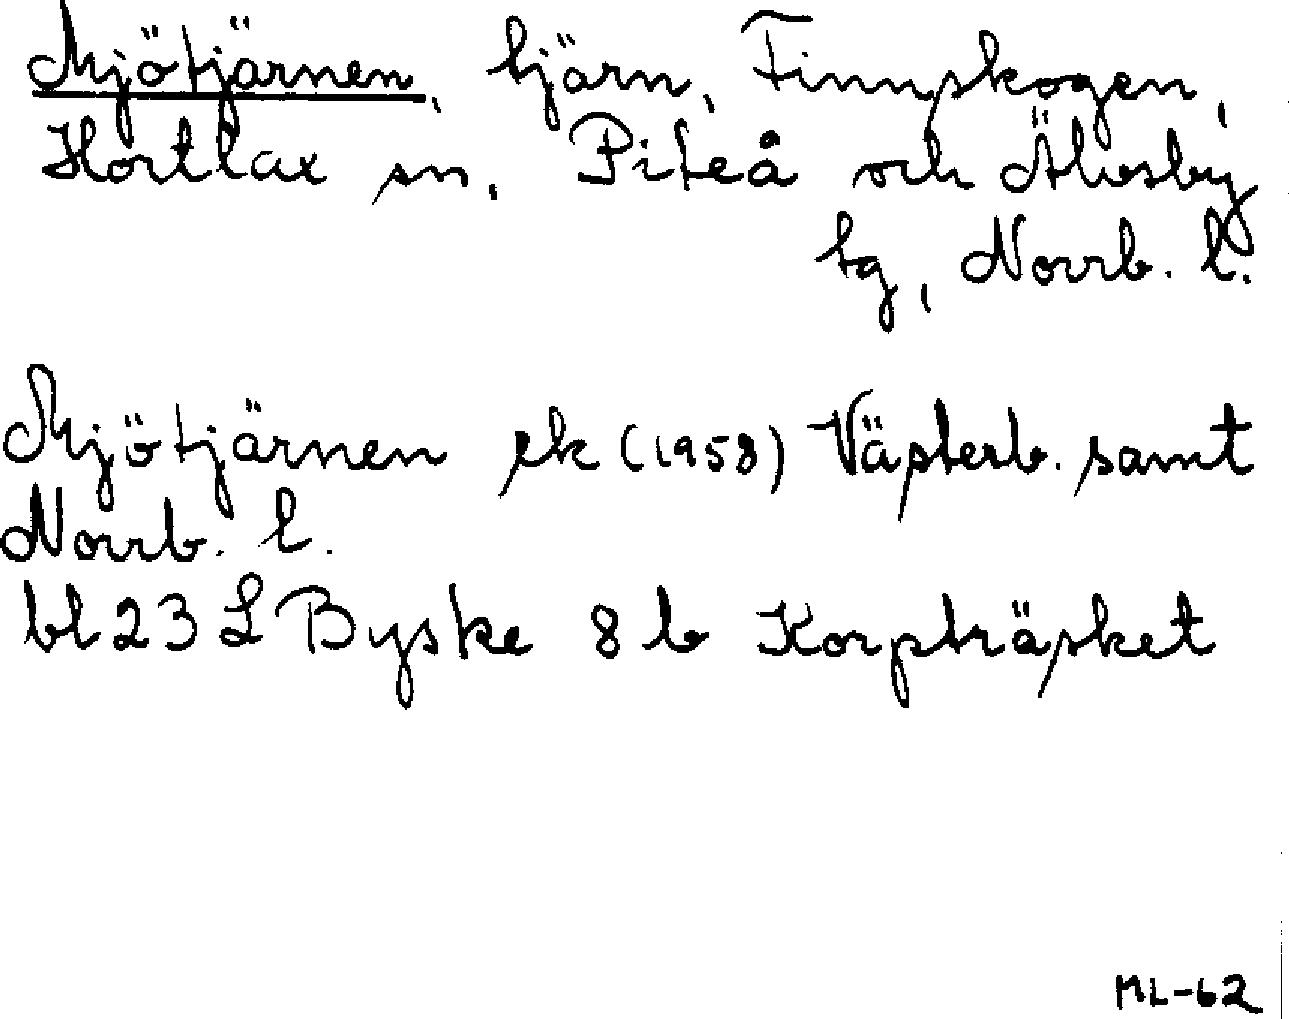 Mjötjärnen, tjärn, Finnskogen,
Hortlax sn, Piteå och Älvsby
tg, Norrb. l.
Mjötjärnen ek (1958) Västerb. samt
Norrb. l.
bl 23 L Byske 8 b Korpträsket
ML-62